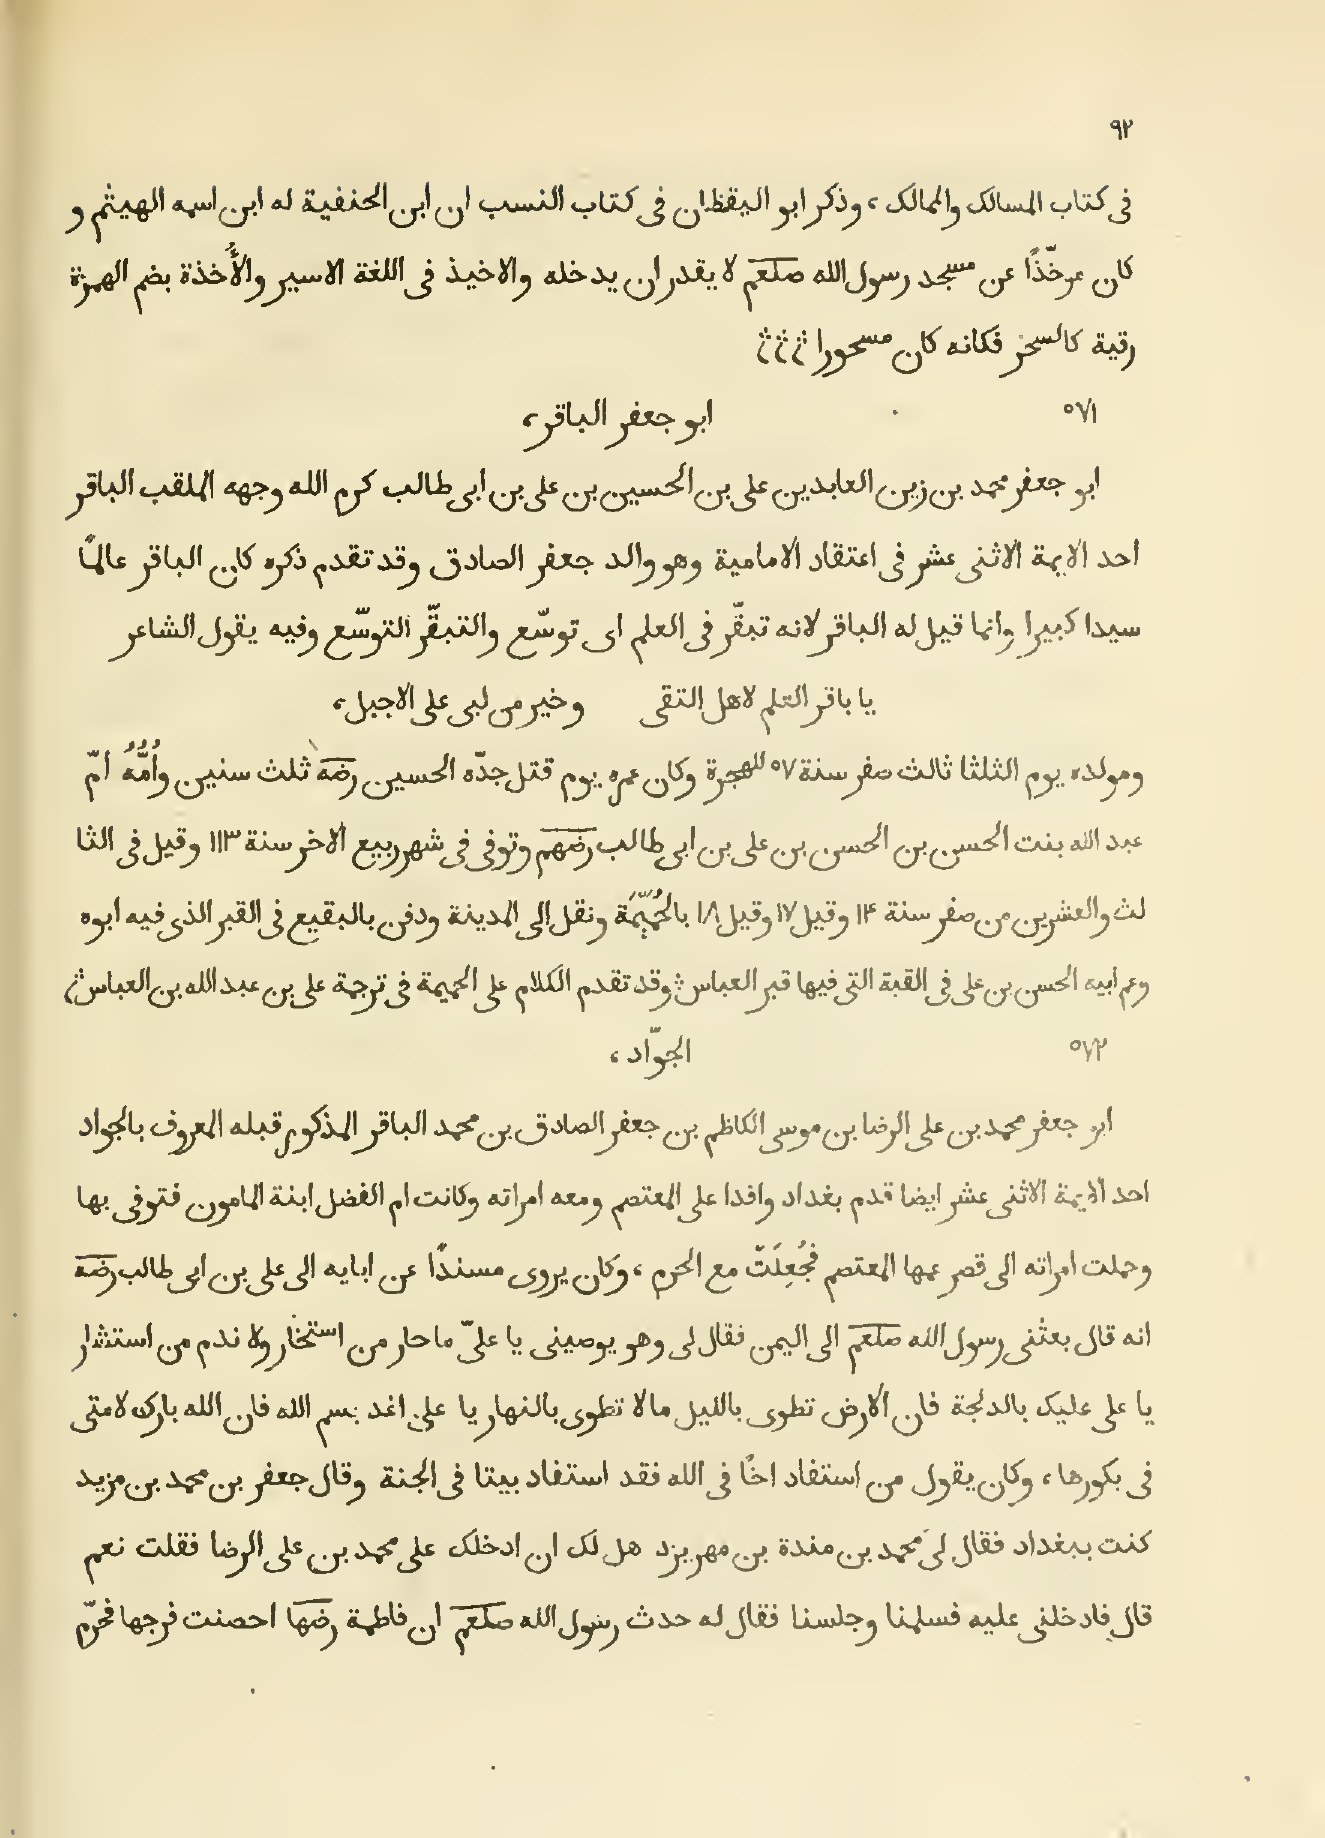 ٩٢
فى كتاب المسالك والممالك ، وذكر ابو اليقظان فى كتاب النسب ان ابن الحنفية له ابن اسمه الهيثم و
كان مرخّذًا عن مسجد رسول الله صلعم لا يقدر ان يدخله والاخيذ فى اللغة الاسير والأُخذة بضم الهمزة
رقية كالسحر فكانه كان مسحورا
٥٧١ ابو جعفر الباقر ،
ابو جعفر محمد بن زين العابدين على بن الحسين بن على بن ابى طالب كرم الله وجهه الملقب الباقر
احد الايمة الاثنى عشر فى اعتقاد الامامية وهو والد جعفر الصادق وقد تقدم ذكره كان الباقر عالمًا
سيدا كبيرا وانما قيل له الباقر لانه تبقّر فى العلم اى توسّع والتبقّر التوسّع وفيه يقول الشاعر
يا باقر العلم لاهل التقى وخير من لبى على الاجبل ،
ومولده يوم الثلثا ثالث صفر سنة ٥٧ للهجرة وكان عمره يوم قتل جدّه الحسين رضه ثلث سنين وأُمُّهُ أمّ
عبد الله بنت الحسن بن الحسن بن على بن ابى طالب رضهم وتوفى فى شهر ربيع الاخر سنة ١١٣ وقيل فى الثا
لث والعشرين من صفر سنة ١١٤ وقيل ١٧ وقيل ١٨ بالحُمَيّمَة ونقل الى المدينة ودفن بالبقيع فى القبر الذى فيه ابوه
وعم ابيه الحسن بن على فى القبة التى فيها قبر العباس وقد تقدم الكلام على الحميمة فى ترجمة على بن عبد الله بن العباس
٥٧٢ الجوّاد ،
ابو جعفر محمد بن على الرضا بن موسى الكاظم بن جعفر الصادق بن محمد الباقر المذكور قبله المعروف بالجواد
احد الايمة الاثنى عشر ايضا قدم بغداد وافدا على المعتصم ومعه امراته وكانت ام الفضل ابنة المامون فتوفى بها
وحملت امراته الى قصر عمها المعتصم فجُعِلَتّ مع الحرم ، وكان يروى مسندًا عن ابايه الى على بن ابى طالب رضه
انه قال بعثنى رسول الله صلعم الى اليمن فقال لى وهو يوصينى يا علىّ ما حار من استخار ولا ندم من استشار
يا على عليك بالدلجة فان الارض تطوى بالليل مالا تطوى بالنهار يا على اغد بسم الله فان الله بارك لامتى
فى بكورها ، وكان يقول من استفاد اخًا فى الله فقد استفاد بيتا فى الجنة وقال جعفر بن محمد بن مزيد
كنت ببغداد فقال لى محمد بن مندة بن مهريزد هل لك ان ادخلك على محمد بن على الرضا فقلت نعم
قال فادخلنى عليه فسلمنا وجلسنا فقال له حدث رسول الله صلعم ان فاطمة رضها احصنت فرجها فحرّم